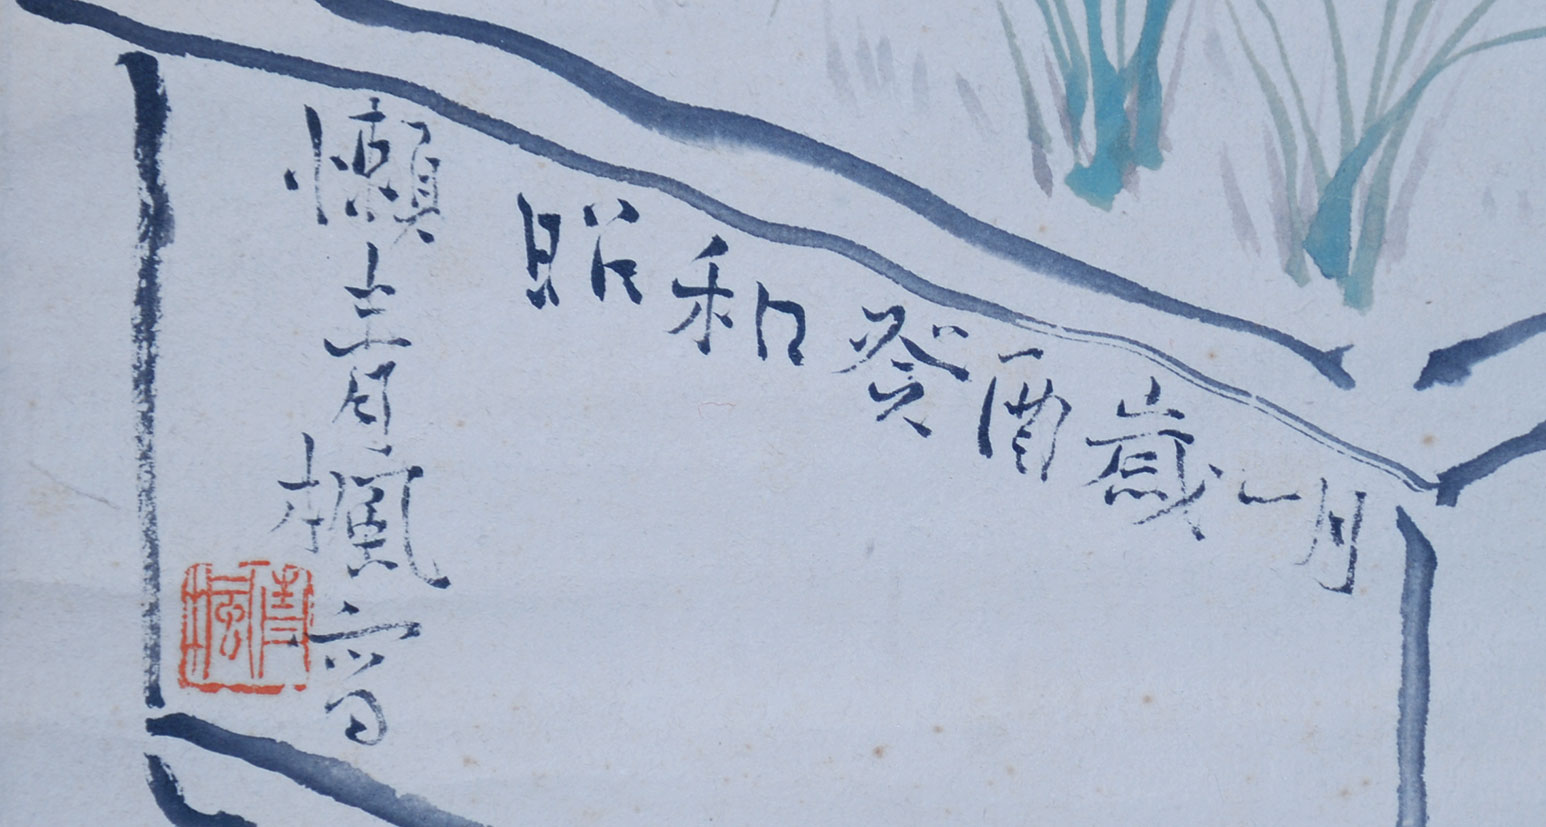 昭和癸酉歳一月
懶青楓
青楓